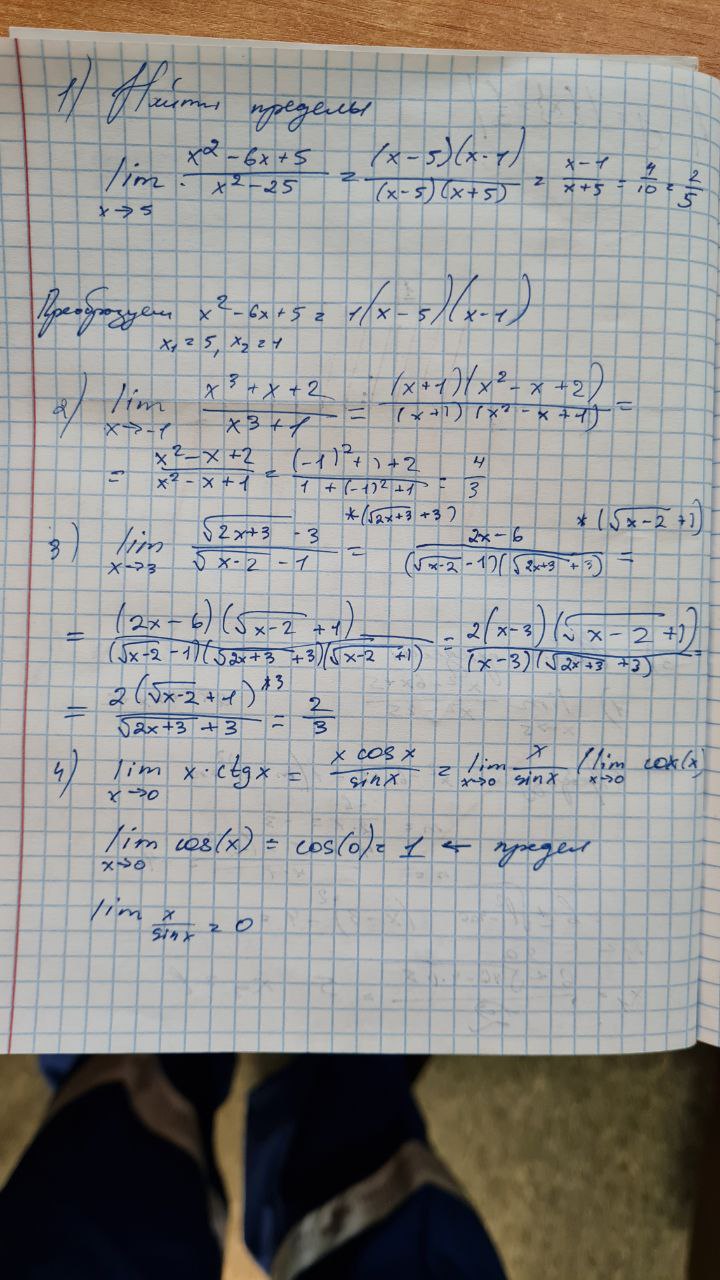 1) Найти пределы
lim x→5 (x² - 6x + 5)/(x² - 25) = (x - 5)(x - 1)/(x-5)(x+5) = (x-1)/(x+5) = 4/10 = 2/5
Преобразуем x² - 6x + 5 = 1(x - 5)(x - 1)
x₁ = 5, x₂ = 1
2) lim x→-1 (x³ + x + 2)/(x³ + 1) = (x+1)(x² - x + 2)/(x+1)(x² - x + 1) =
= (x² - x + 2)/(x² - x + 1) = ((-1)² + 1 + 2)/(1 + (-1)² + 1) = 4/3
*(√(2x+3) + 3) *(√(x-2) + 1)
3) lim x→3 (√(2x+3) - 3)/(√(x-2) - 1) = (2x - 6)/(√(x-2) - 1)(√(2x+3) + 3) =
= (2x - 6)(√(x-2) + 1)/(√(x-2) - 1)(√(2x+3) + 3)(√(x-2) + 1) = 2(x-3)(√(x-2) + 1)/(x-3)(√(2x+3) + 3) =
= 2(√(x-2) + 1)/(√(2x+3) + 3) = 2/3
4) lim x→0 x · ctg x = (x cos x)/(sin x) = lim x→0 x/(sin x) (lim x→0 cos(x)
lim x→0 cos(x) = cos(0) = 1 ← предел
lim x/(sin x) = 0